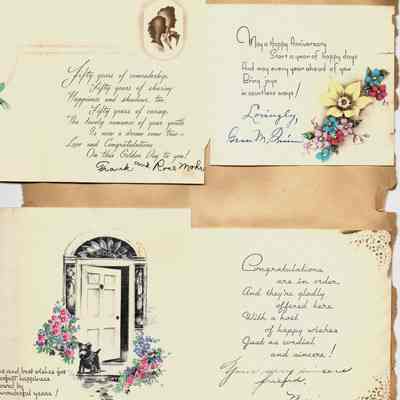 Fifty years of comradeship,
Fifty years of sharing
Happiness and shadow, too,
Fifty years of caring.
The lovely romance of your youth
Is now a dream come true—
Love and Congratulations
On this Golden Day to you!
Frank and Rose Mohr
May a Happy Anniversary
Start a year of happy days
And may every year ahead of you
Bring joys
in countless ways!
Lovingly,
M.
and best wishes for
perfect happiness
owed by
wonderful years!
Congratulations
are in order,
And they're gladly
offered here
With a host
of happy wishes
Just as cordial
and sincere!
Your very sincere
friend,